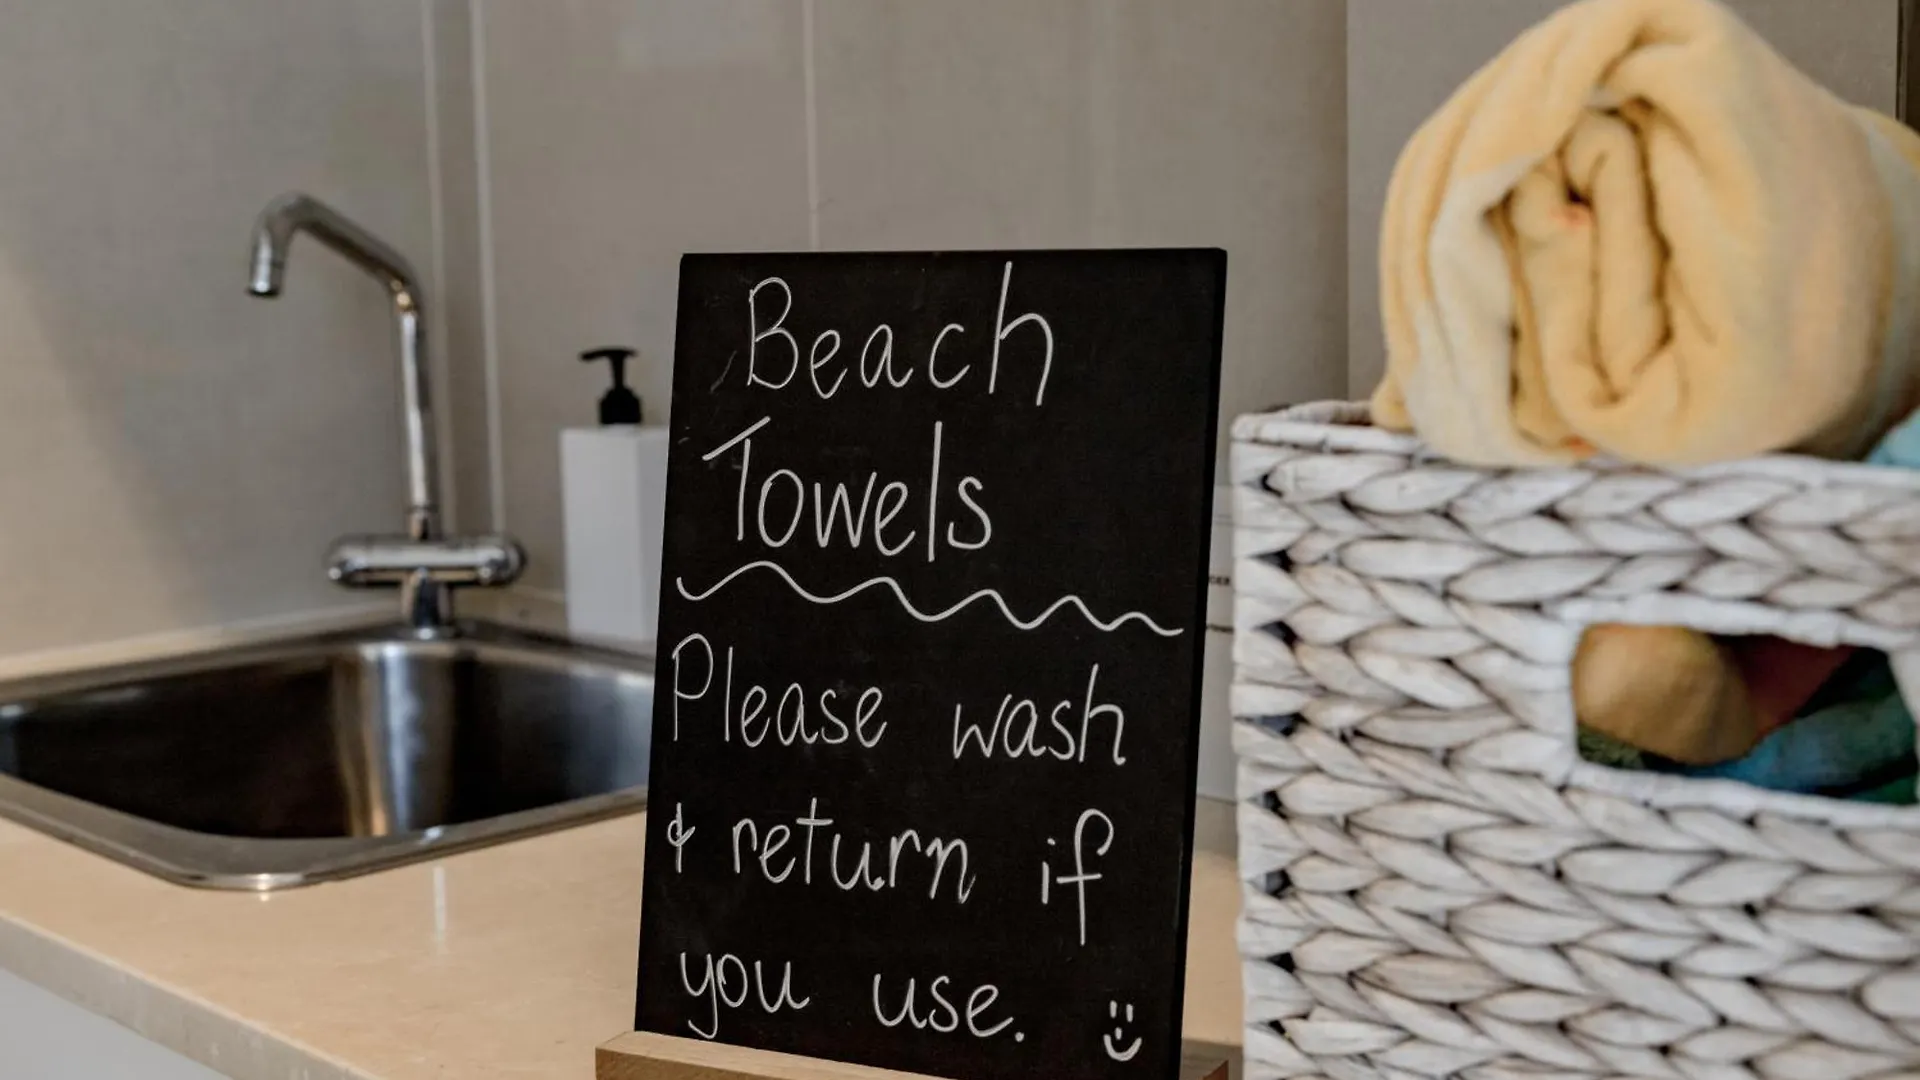 Beach
Towels
Please wash
& return if
you use.